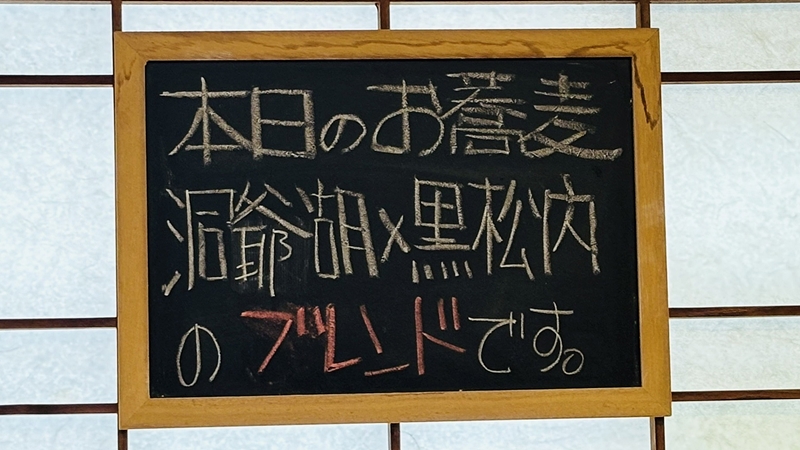 本日のお蕎麦
洞爺湖×黒松内
のブレンドです。